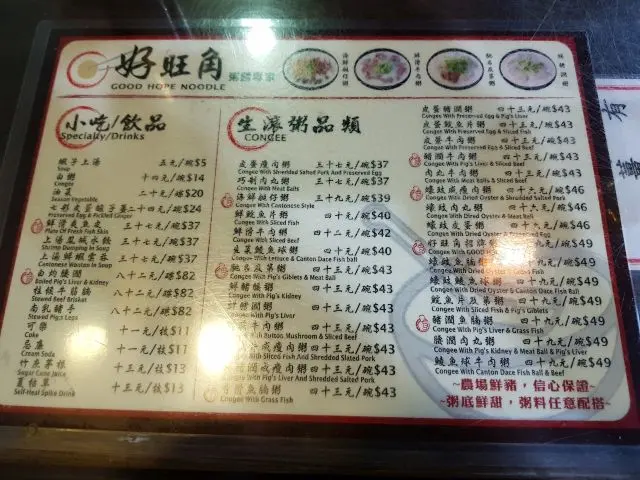 好旺角 粥麵專家
GOOD HOPE NOODLE
小吃/飲品
Specialty/Drinks
蝦子上湯 五元/碗$5
Soup
白粥 十四元/碗$14
Congee
油菜 二十元/碟$20
Season Vegetable
七彩皮蛋酸子姜 二十四元/碗$24
Preserved Egg & Pickled Ginger
鮮滑爽魚皮 三十七元/碗$37
Plate Of Fresh Fish Skin
上湯韭菜水餃 三十七元/碗$37
Shrimp Dumping In Soup
上湯鮮蝦雲吞 三十七元/碗$37
Cantonese Wonton In Soup
白灼腰潤 八十二元/碟$82
Boiled Pig's Liver & Kidney
柱侯牛筋腩 八十二元/碟$82
Stewed Beef Brisket
南乳豬手 八十二元/碟$82
Stewed Pig's Legs
可樂 十一元/枝$11
Coke
忌廉 十一元/枝$11
Cream Soda
竹蔗茅根 十三元/枝$13
Sugar Cane Juice
夏枯草 十三元/枝$13
Self-Heal Spike Drink
生滾粥品類
CONGEE
皮蛋瘦肉粥 三十七元/碗$37
Congee With Shredded Salted Pork And Preserved Egg
巧制肉丸粥 三十七元/碗$37
Congee With Meat Balls
海鮮艇仔粥 三十九元/碗$39
Congee With Cantonese Style
鮮鯇魚片粥 四十元/碗$40
Congee With Sliced Fish
鮮滑牛肉粥 四十二元/碗$42
Congee With Sliced Beef
生菜鯪魚球粥 四十元/碗$40
Congee With Lettuce & Canton Dace Fish Ball
馳名及第粥 四十三元/碗$43
Congee With Pig's Giblets & Meat Balls
鮮豬腰粥 四十三元/碗$43
Congee With Pig's Kidney
四十三元/碗$43
Congee With Pig's Liver
四十三元/碗$43
Congee With Buttos Mushroom & Sliced Beef
四十三元/碗$43
Congee With Sliced Fish And Shredded Slated Pork
四十三元/碗$43
Congee With Pig's Liver And Shredded Salted Pork
四十三元/碗$43
Congee With Grass Fish
皮蛋豬潤粥 四十三元/碗$43
Congee With Preserved Egg & Pig's Liver
皮蛋鯇魚片粥 四十三元/碗$43
Congee With Preserved Egg & Sliced Fish
皮蛋牛肉粥 四十三元/碗$43
Congee With Preserved Egg & Sliced Beef
豬潤牛肉粥 四十三元/碗$43
Congee With Pig's Liver & Sliced Beef
肉丸牛肉粥 四十三元/碗$43
Congee With Meat Balls & Sliced Beef
蠔豉咸瘦肉粥 四十六元/碗$46
Congee With Dried Oyster & Shredded Salted Pork
蠔豉肉丸粥 四十六元/碗$46
Congee With Dried Oyster & Meat Ball
蠔豉皮蛋粥 四十六元/碗$46
Congee With Dried Oyster
好旺角招牌 $49
Congee With GOOD
蠔豉魚 $49
Congee With Dried Oyster
蠔豉鯪魚球粥 四十九元/碗$49
Congee With Dried Oyster & Canton Dace Fish Ball
鯇魚片及第粥 四十九元/碗$49
Congee With Sliced Fish & Pig's Giblets
豬潤魚腩粥 四十九元/碗$49
Congee With Pig's Liver & Grass Fish
腰潤肉丸粥 四十九元/碗$49
Congee With Pig's Kidney & Meat Ball & Pig's Liver
鯪魚球牛肉粥 四十九元/碗$49
Congee With Canton Dace Fish Ball & Beef
~農場鮮豬,信心保證~
~粥底鮮甜,粥料任意配搭~
有